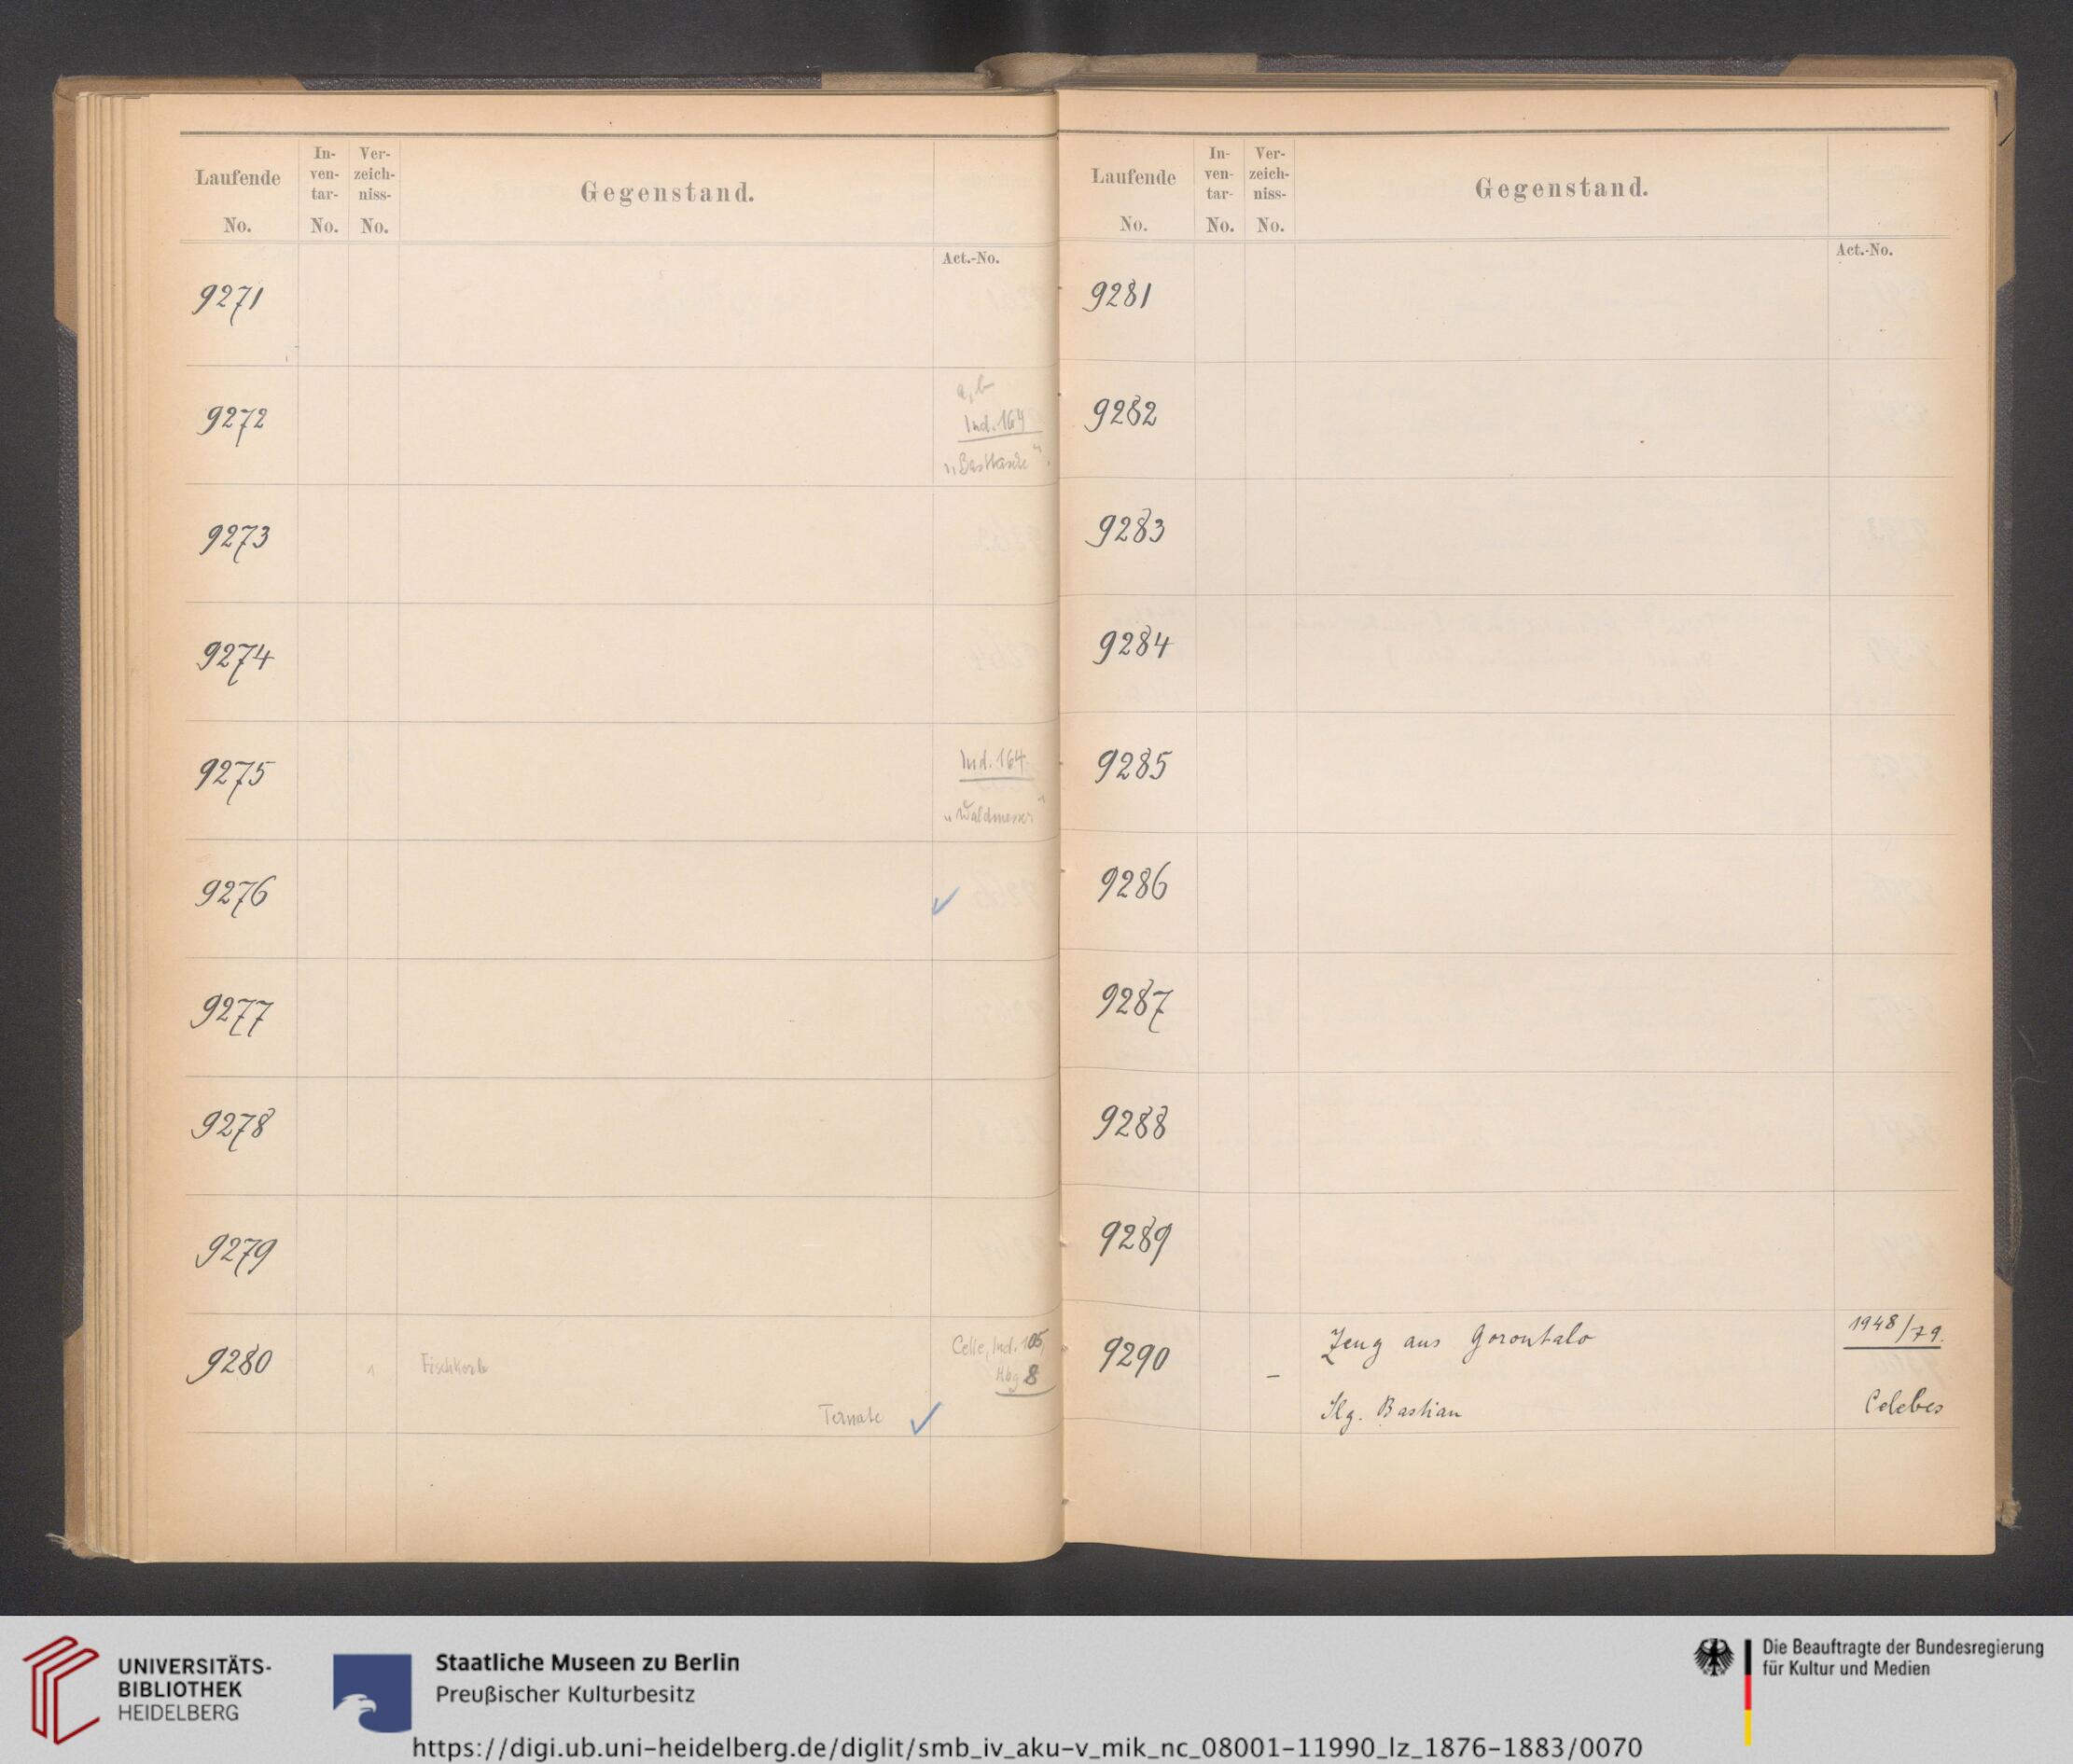 Laufende No.
In-ven-tar- No.
Ver-zeich-niss- No.
Gegenstand.
Act.-No.
9271
9272
a, b
Ind. 164
„Basttasche"
9273
9274
9275
Ind. 164
„Waldmesser"
9276 ✓
9277
9278
9279
9280 1 Fischkorb
Celle, Ind. 105,
Hbg 8
Ternate ✓
Laufende No.
In-ven-tar- No.
Ver-zeich-niss- No.
Gegenstand.
Act.-No.
9281
9282
9283
9284
9285
9286
9287
9288
9289
9290 – Zeug aus Gorontalo 1948/79.
Slg. Bastian Celebes
UNIVERSITÄTS-
BIBLIOTHEK
HEIDELBERG
Staatliche Museen zu Berlin
Preußischer Kulturbesitz
Die Beauftragte der Bundesregierung
für Kultur und Medien
https://digi.ub.uni-heidelberg.de/diglit/smb_iv_aku-v_mik_nc_08001-11990_lz_1876-1883/0070